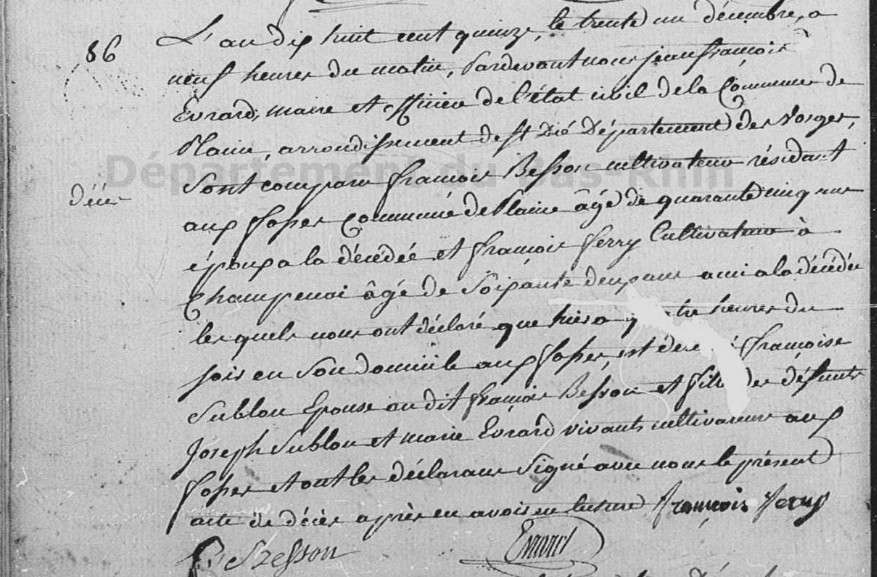 86
L'an dix huit cent quinze, le trente un décembre, a
neuf heures du matin, Pardevant nous jean françois
Evrard, maire et officier de l'état civil de la Commune de
Plaine, arrondissement de St Dié Département des Vosges,
Sont comparu françois Besson cultivateur résidant
décè
aux fosses Commune de Plaine âgé de quarante cinq ans
époux a la décédée et françois ferry Cultivateur à
Champenai âgé de Soixante deux ans ami a la décédée
les quels nous ont déclaré que hier a quatre heures du
soir en Son domicile aux fosses, est decedé françoise
Sublon Epouse au dit françois Besson et fille des défunts
Joseph Sublon et marie Evrard vivants cultivateurs aux
fosses et ont les déclarans Signé avec nous le présent
acte de décès après en avoir eu lecture françois ferry
f Besson
Evrard
Département du Bas-Rhin